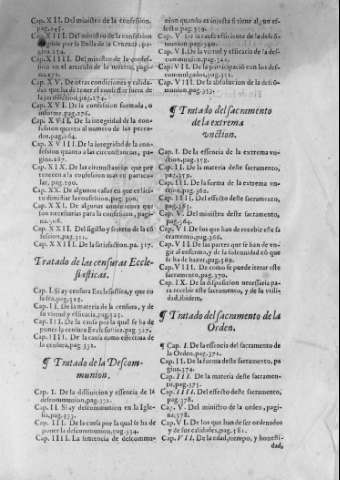 Cap. XII. Del ministro de la confession,
pag.245.
Cap. XIII. Del ministro de la confession
elegido por la Bulla de la Cruzada, pa-
gina 254.
Cap. XIIII. Del ministro de la confes-
sion en el articulo de la muerte, pagi-
Cap. XV. De otras condiciones y calida-
des que ha de tener el confessor fuera de
la jurisdiction, pag.274.
Cap. XVI. De la confession formada, o
informe, pag.276.
Cap. XVII. De la integridad de la con-
fession quanto al numero de los peca-
dos, pag.284.
Cap. XVIII. De la integridad de la con-
fession quanto a las circunstancias, pa-
gina.287.
Cap. XIX. De las circunstancias que per
tenecen a la confession mas en particu-
lar, pag.290.
Cap. XX. De algunos casos en que es lici-
to dimidiar la confession, pag.300.
Cap. XXI. De algunas condiciones que
son necessarias para la confession, pagi-
na.308.
Cap. XXII. Del sigillo y secreto de la cõ
fession, pag.312.
Cap. XXIII. De la satisfaction. pa. 317.
Tratado de las censuras Eccle-
siasticas.
Cap. I. Si ay censura Ecclesiastica, y que co
sa sea, pag.325.
Cap. II. De la materia de la censura, y de
su virtud y eficacia, pag.325.
Cap. III. De la causa por la qual se ha de
poner la censura Ecclesiastica, pag.327.
Cap. IIII. De la causa como effectiua de
la censura, pag.332.
¶ Tratado de la Descom-
munion.
Cap. I. De la diffinicion y essencia de la
descommunion, pag.332.
Cap. II. Si ay descommunion en la Igle-
sia, pag.333.
Cap. III. De la causa por la qual se ha de
poner la descommunion, pag.334.
Cap. IIII. La sentencia de descommu-
nion quando es injusta si tiene algun ef-
fecto pag.339.
Cap. V. De la causa efficiente de la descõ
munion, pag.340.
Cap. VI. De la virtud y eficacia de la des-
Cap. VII. De la participacion con los des-
communicados, pag.351.
Cap. VIII. De la absolucion de la descõ-
munion, pag.353.
¶ Tratado del sacramento
de la extrema
vnction.
Cap. I. De la essencia de la extrema vn-
ction, pag.358.
Cap. II. De la materia deste sacramento,
pag.359.
Cap. III. De la forma de la extrema vn-
ction, pag.362.
Cap. IIII. Del effecto deste sacramento,
Cap. V. Del ministro deste sacramento,
pag.364.
Cap. VI. De los que han de recebir este sa
cramento, pag.366.
Cap. VII. De las partes que se han de vn-
gir al enfermo, y de la solennidad cõ que
se ha de hazer, pag.369.
Cap. VIII. De como se puede iterar este
sacramento, pag.370.
Cap. IX. De la disposicion necessaria pa-
ra recebir este sacramento, y de la vtili-
dad, ibidem.
¶ Tratado del sacramento de la
Orden.
¶ Cap. I. De la essencia del sacramento de
la Orden, pag.372.
Cap. II. De la forma deste sacramento, pa
gina.374.
Cap. III. De la materia deste sacramen-
to, pag.375.
Cap. IIII. Del effecto deste sacramento,
pag.378.
Cap. V. Del ministro de la orden, pagi-
na.378.
Cap. VI. De los que han de ser ordenados
y de sus calidades, pag.381.
Cap. VII. De la edad, tiempo, y honesti-
dad,